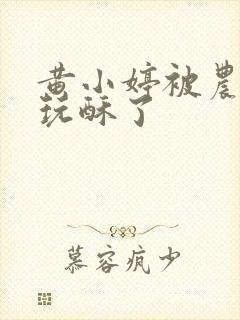 黄小婷被農
玩酥了
慕容疯少